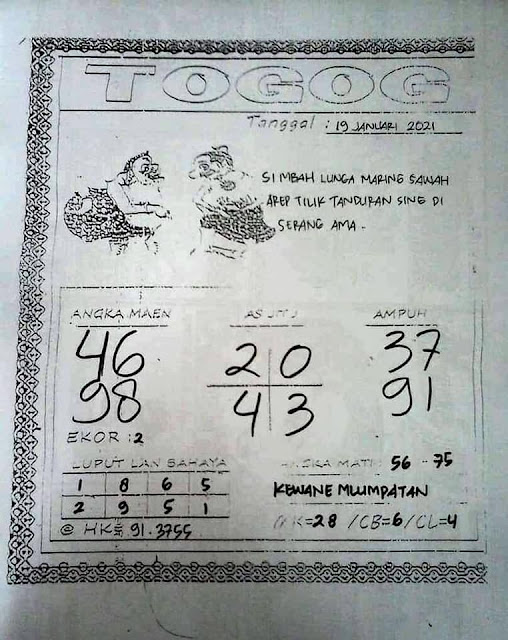 TOGOG
Tanggal : 19 JANUARI 2021
SI MBAH LUNGA MARING SAWAH
AREP TILIK TANDURAN SING DI
SERANG AMA.
ANGKA MAEN
46
98
EKOR : 2
AS JITU
2 0
4 3
AMPUH
37
91
LUPUT LAN BAHAYA
1 8 6 5
2 9 5 1
@ HK = 91.3755
ANGKA MATI 56 - 75
KEWANE MLUMPATAN
=28 /CB=6/CL=4